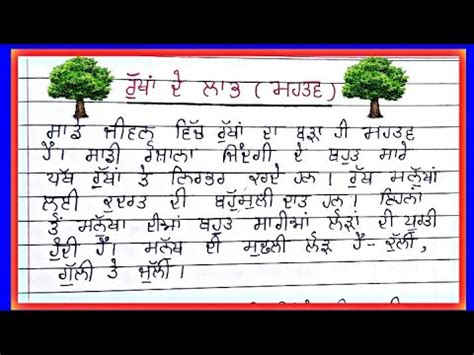 ਰੁੱਖਾਂ ਦੇ ਲਾਭ (ਮਹਤਵ)
ਸਾਡੇ ਜੀਵਨ ਵਿੱਚ ਰੁੱਖਾਂ ਦਾ ਬੜਾ ਹੀ ਮਹਤਵ
ਹੈ। ਸਾਡੀ ਰੋਜ਼ਾਨਾ ਜ਼ਿੰਦਗੀ ਦੇ ਬਹੁਤ ਸਾਰੇ
ਪੱਖ ਰੁੱਖਾਂ ਤੇ ਨਿਰਭਰ ਕਰਦੇ ਹਨ। ਰੁੱਖ ਮਨੁੱਖਾਂ
ਲਈ ਕੁਦਰਤ ਦੀ ਬਹੁੱਮੁਲੀ ਦਾਤ ਹਨ। ਇਹਨਾਂ
ਤੋਂ ਮਨੁੱਖਾ ਦੀਆਂ ਬਹੁਤ ਸਾਰੀਆਂ ਲੋੜਾਂ ਦੀ ਪੂਰਤੀ
ਹੁੰਦੀ ਹੈ। ਮਨੁੱਖ ਦੀ ਮੁਢਲੀ ਲੋੜ ਹੈ- ਕੁੱਲੀ,
ਗੁੱਲੀ ਤੇ ਜੁੱਲੀ।